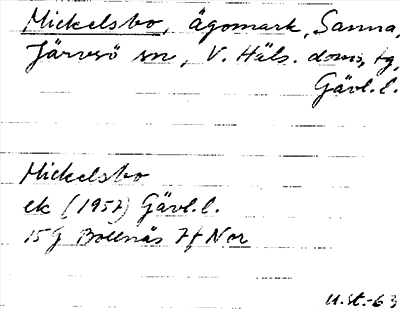 Mickelsbo, ägomark, Sanna,
Järvsö sn, V. Häls. doms. tg,
Gävl. l.
Mickelsbo
ek (1957) Gävl. l.
15G Bollnäs 7f Nor
U.st.-63